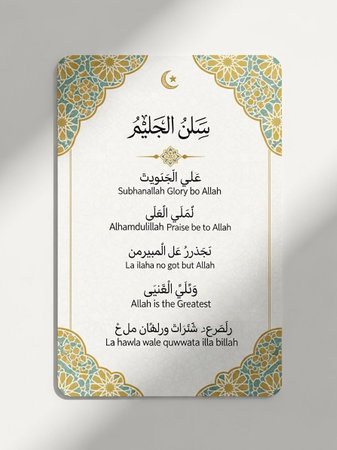 سَلنُ الجَليْمُ
عَلي الْجَنويتْ
Subhanallah Glory bo Allah
نُمَلي الْعَلَى
Alhamdulillah Praise be to Allah
نَجذررُ عَل المبيرمن
La ilaha no got but Allah
وَئلَيُّ الْغَنيَى
Allah is the Greatest
La hawla wale quwwata illa billah